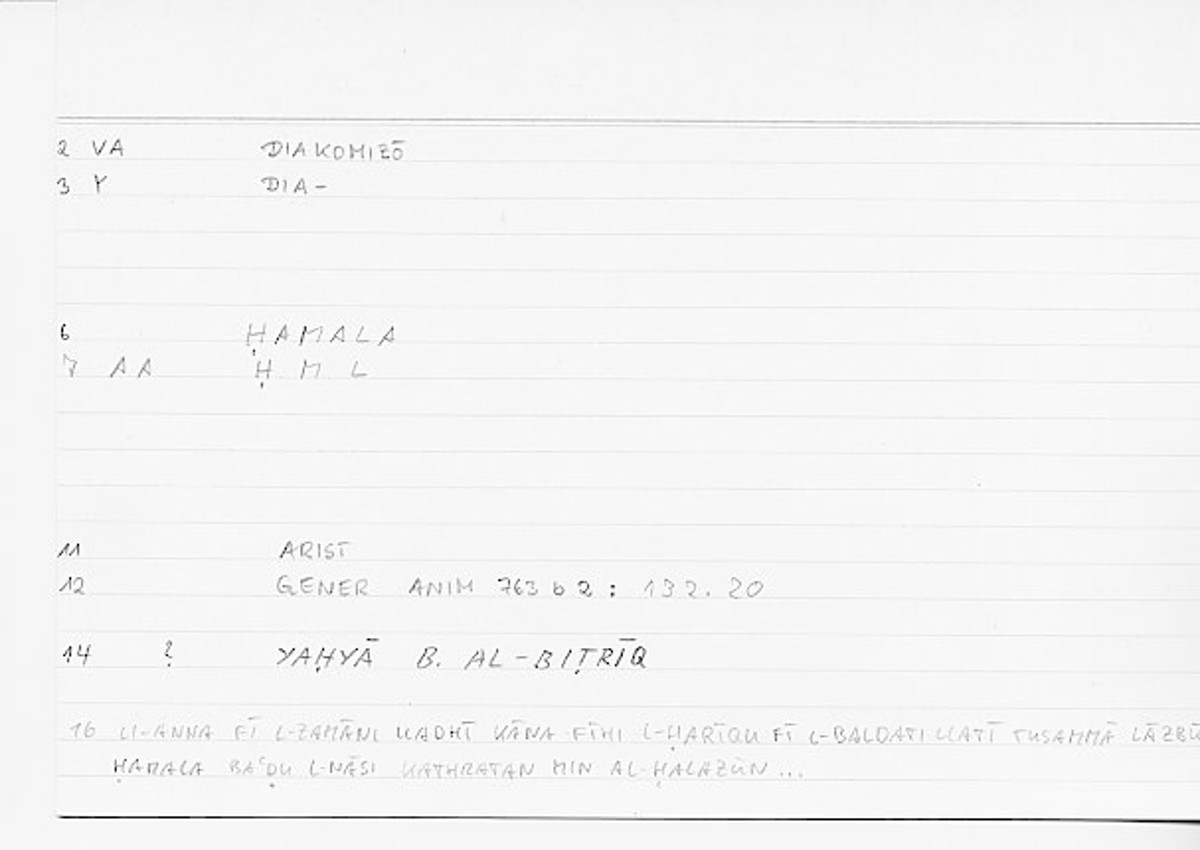 2 VA DIAKOMIZŌ
3 Y DIA-
6 ḤAMALA
7 AA Ḥ M L
11 ARIST
12 GENER ANIM 763 b 2 : 132.20
14 ? YAḤYĀ B. AL-BIṬRĪQ
16 LI-ANNA FĪ L-ZAMĀNI LLADHĪ KĀNA FĪHI L-ḤARĪQU FĪ L-BALDATI LLATĪ TUSAMMĀ
ḤAMALA BAʿḌU L-NĀSI KATHRATAN MIN AL-ḤALAZŪN ...